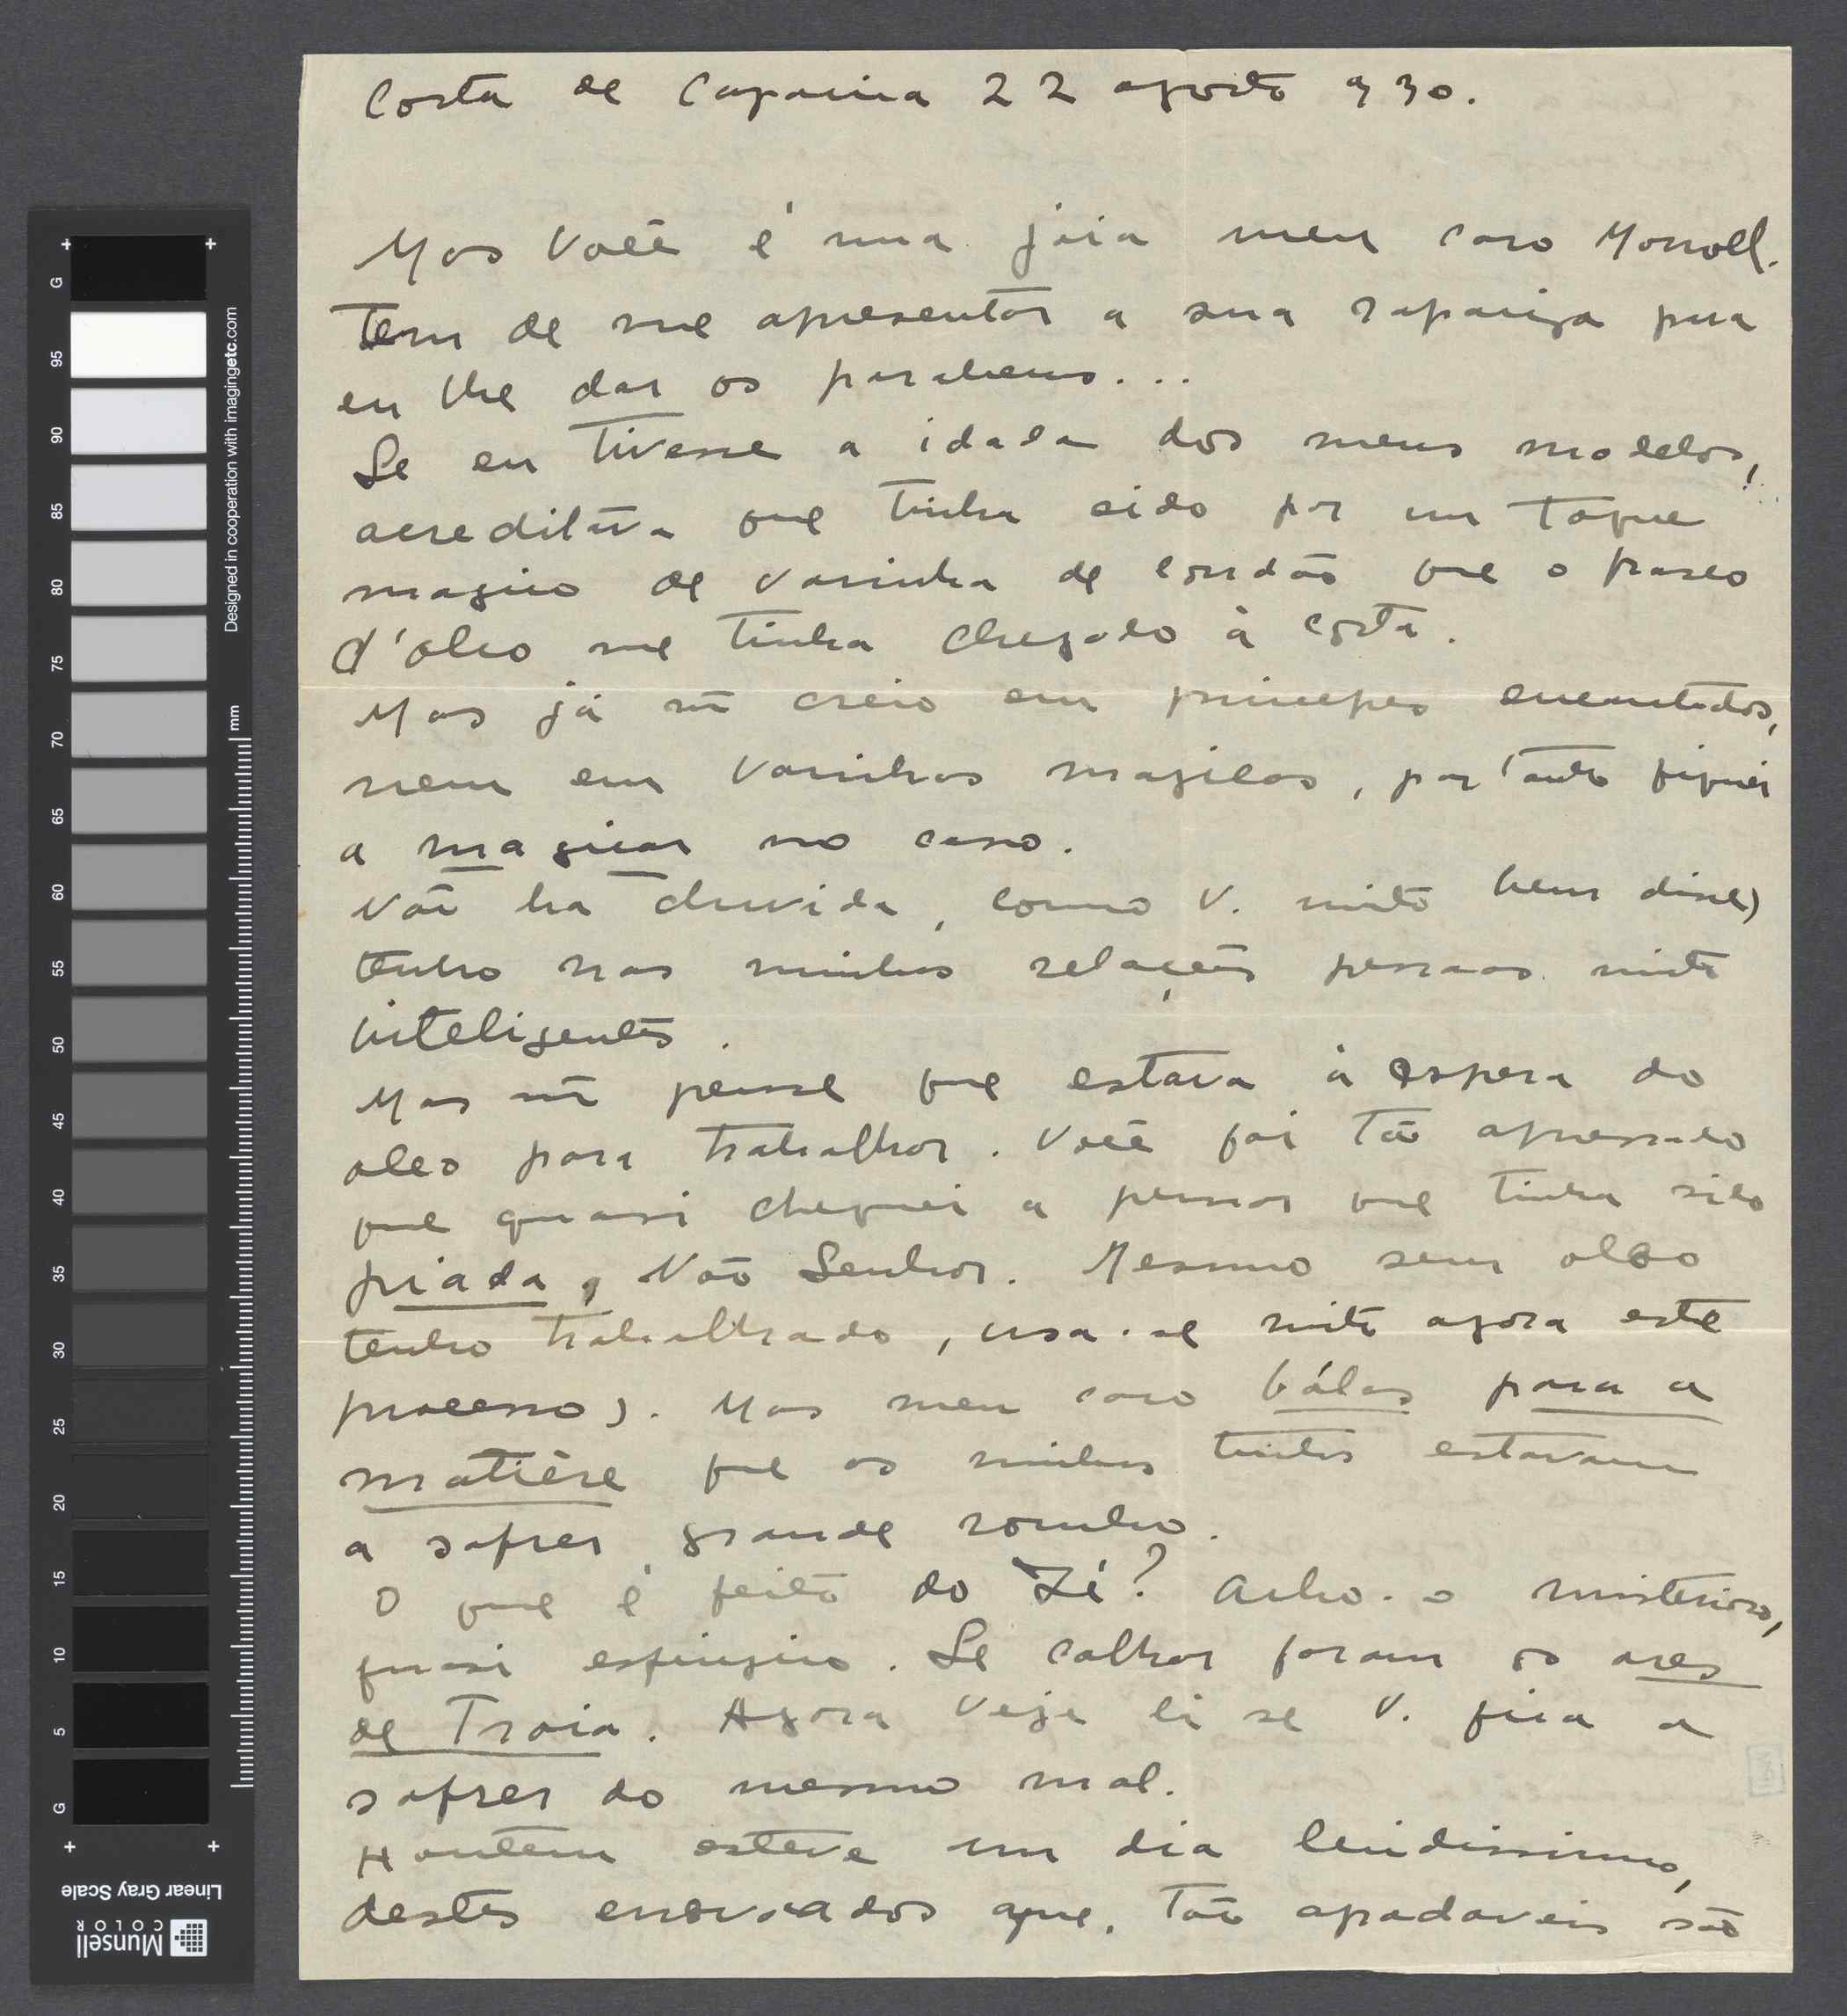 Costa de Caparica 22 agosto 930.
Mas Você é uma joia meu caro
Tem de me apresentar a sua rapariga para
eu lhe dar os parabens...
Se eu tivesse a idade dos meus modelos,
acreditava que tinha sido por um toque
magico de varinha de condão que o frasco
d'oleo me tinha chegado à costa.
Mas já nã creio em principes encantados,
nem em varinhas magicas, por tanto fiquei
a magicar no caso.
Não ha duvida, como V. muito bem disse)
tenho nas minhas relações pessoas muito
inteligentes.
Mas nã pense que estava à espera do
oleo para trabalhar. Você foi tão apressado
que quasi cheguei a pensar que tinha sido
piada, Não Senhor. Mesmo sem oleo
tenho trabalhado, usa-se muito agora este
processo). Mas meu caro bálas para a
matière que as minhas tintas estavam
a sofrer grande rombo.
O que é feito do Zé? Acho-o misterioso,
quasi esfingico. Se calhar foram os ares
de Troia. Agora veja lá se V. fica a
sofrer do mesmo mal.
Hontem esteve um dia lindissimo,
destes enevoados que, tão agradaveis são
G
95
90
85
80
75
70
65
60
55
50
45
40
35
30
25
20
15
10
5
G
mm
Designed in cooperation with imagingetc.com
Linear Gray Scale
Munsell
COLOR